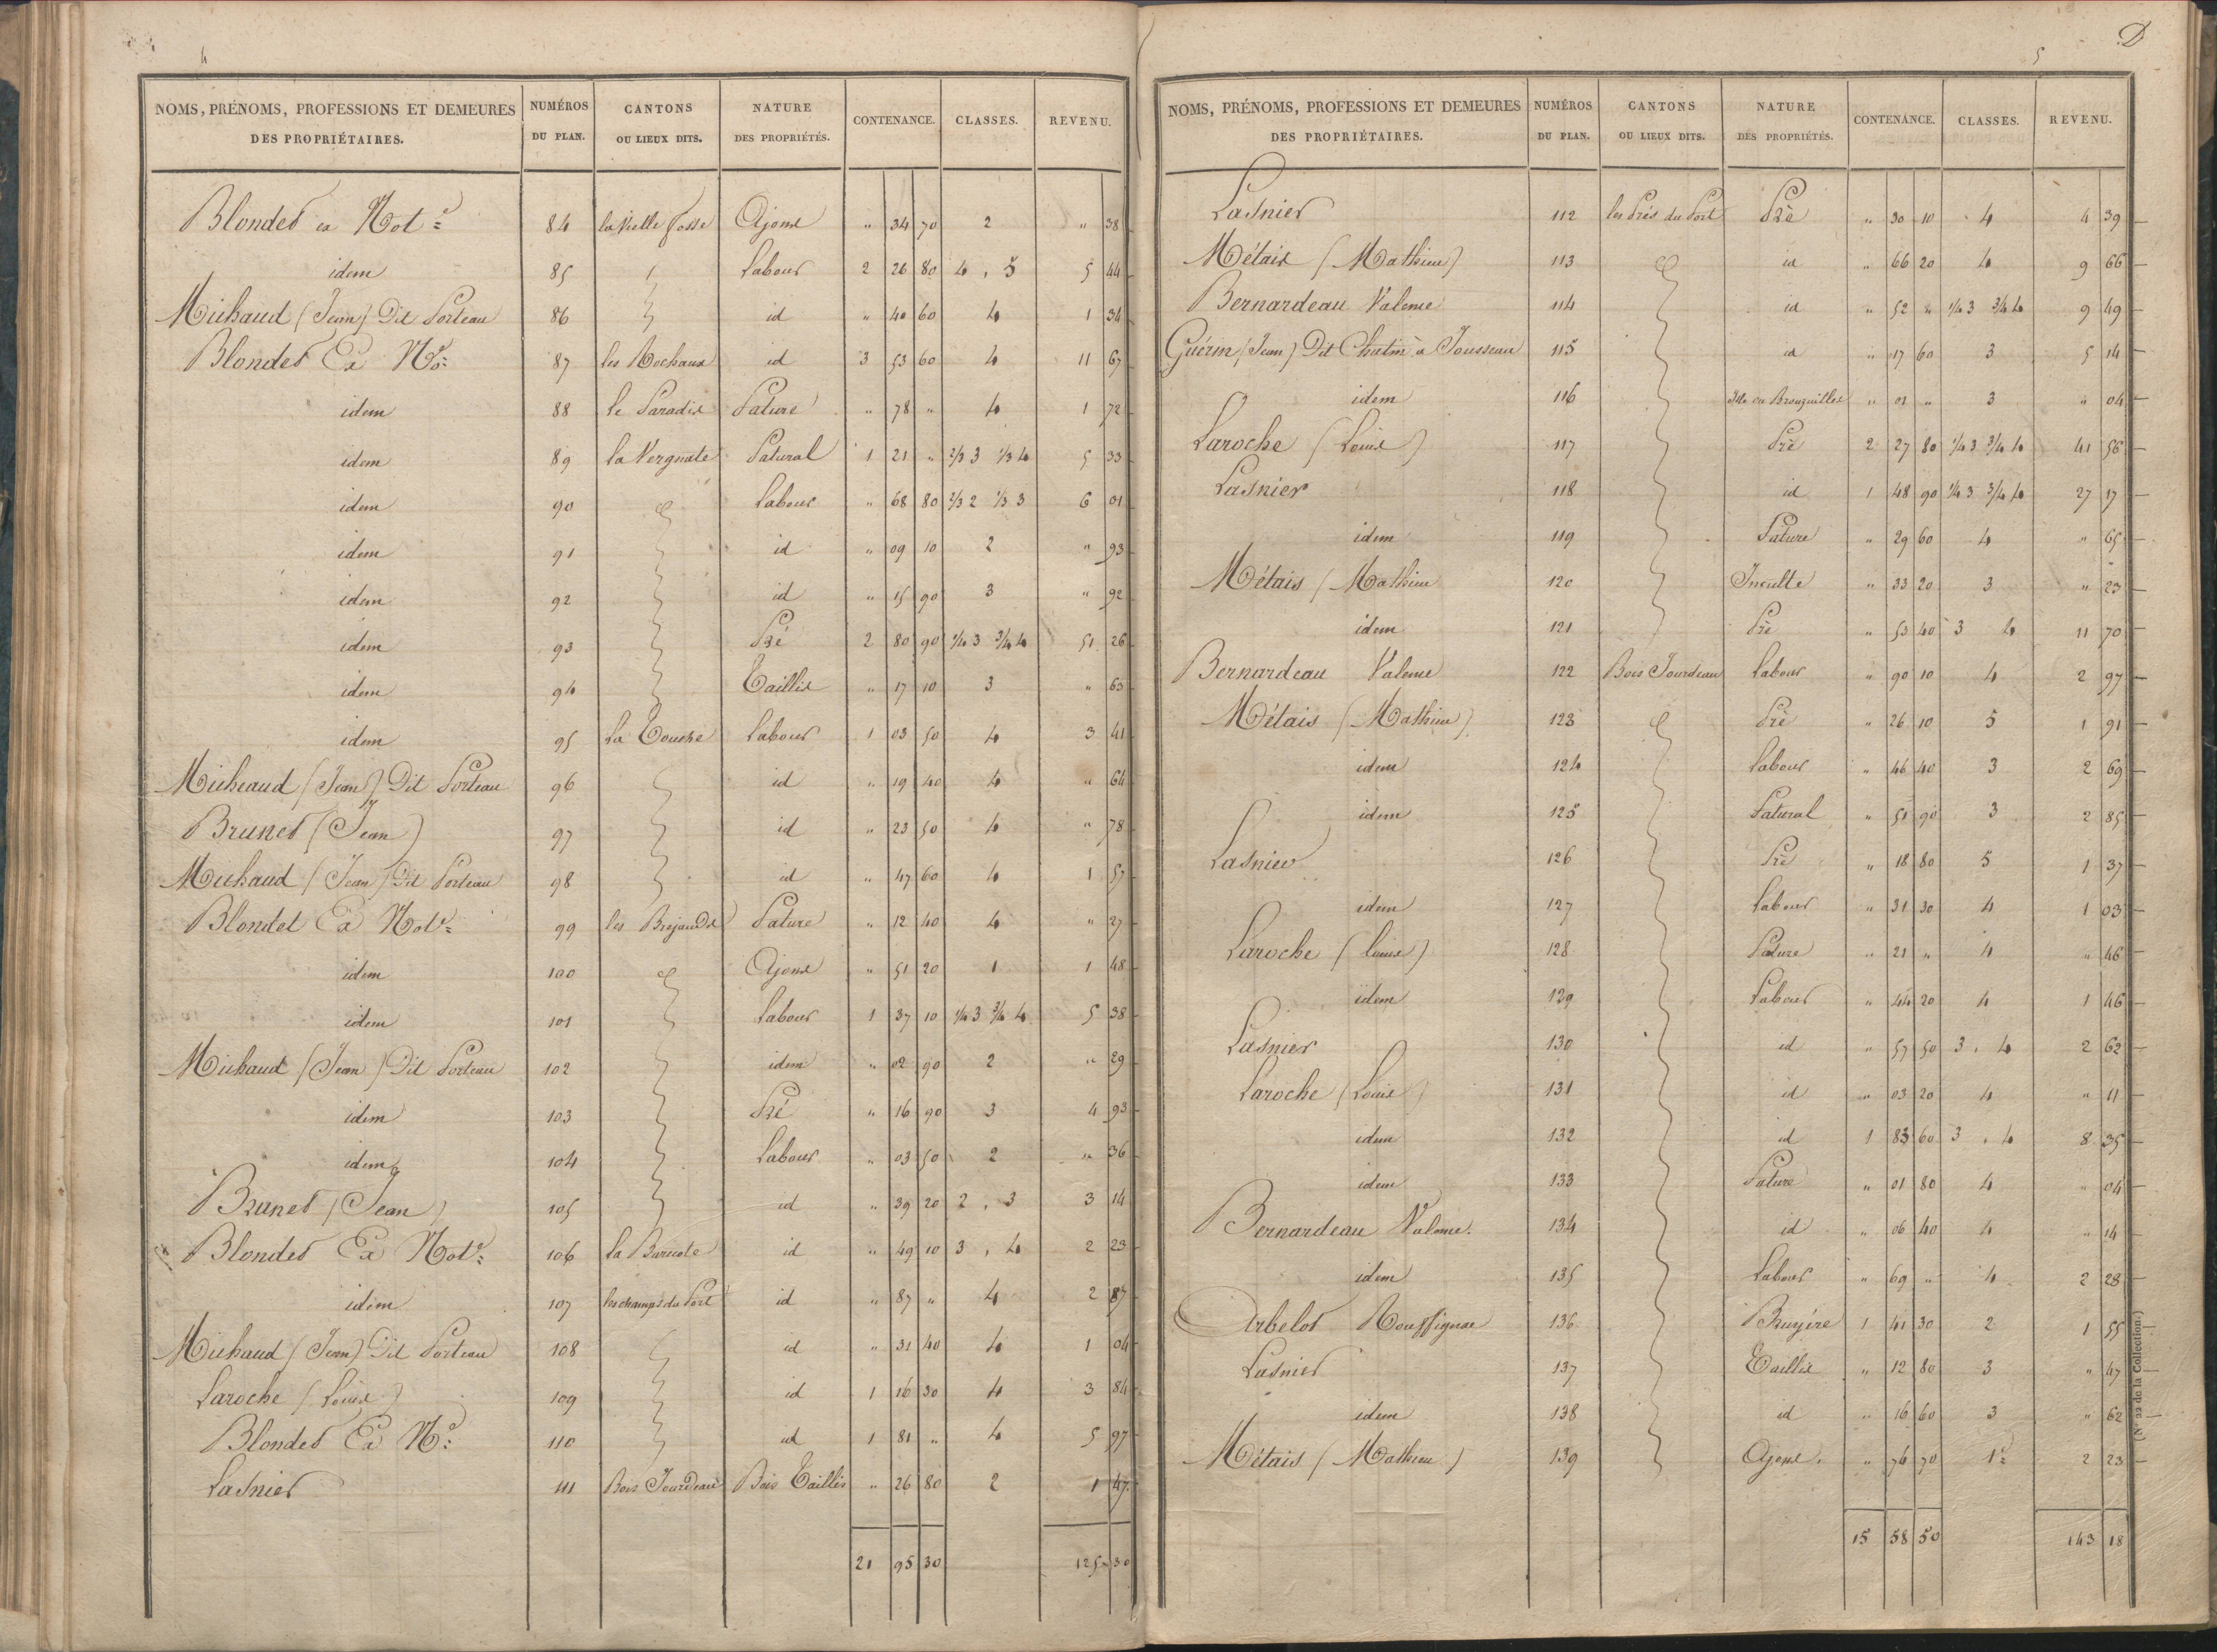 4
NOMS, PRÉNOMS, PROFESSIONS ET DEMEURES DES PROPRIÉTAIRES. NUMÉROS DU PLAN. CANTONS OU LIEUX DITS. NATURE DES PROPRIÉTÉS. CONTENANCE. CLASSES. REVENU.
Blondet ex Not.e 84 la Vielle fosse Ajonc " 34 70 2 " 38
idem 85 Labour 2 26 80 4, 5 5 44
Michaud (Jean) Dit Porteau 86 id " 40 60 4 1 34
Blondet Ex No: 87 les Rochaux id 3 53 60 4 11 67
idem 88 le Paradis Pature " 78 " 4 1 72
idem 89 la Vergnate Patural 1 21 " 2/3 3 1/3 4 5 33
idem 90 Labour " 68 80 2/3 2 1/3 3 6 01
idem 91 id " 09 10 2 " 93
idem 92 id " 15 90 3 " 92
idem 93 Pré 2 80 90 1/4 3 3/4 4 51 26
idem 94 Taillis " 17 10 3 " 63
idem 95 La Touche Labour 1 03 50 4 3 41
Micheaud (Jean) Dit Porteau 96 id " 19 40 4 " 64
Brunet (Jean) 97 id " 23 50 4 " 78
Michaud (Jean) Dit Porteau 98 id " 47 60 4 1 57
Blondet Ex Not.e 99 les Brejauds Pature " 12 40 4 " 27
idem 100 Ajonc " 51 20 1 1 48
idem 101 Labour 1 37 10 1/4 3 3/4 4 5 38
Michaud (Jean) Dit Porteau 102 idem " 02 90 2 " 29
idem 103 Pré " 16 90 3 4 93
idem 104 Labour " 03 50 2 " 36
Brunet (Jean) 105 id " 39 20 2, 3 3 14
Blondet Ex Not.e 106 la id " 49 10 3, 4 2 23
idem 107 les champs du Port id " 87 " 4 2 87
Michaud (Jean) Dit Porteau 108 id " 31 40 4 1 04
Laroche (Louis) 109 id 1 16 30 4 3 84
Blondet Ex No: 110 id 1 81 " 4 5 97
Lasnier 111 Bois Jourdeau Bois Taillis " 26 80 2 1 47
21 95 30 125 30
5
D
NOMS, PRÉNOMS, PROFESSIONS ET DEMEURES DES PROPRIÉTAIRES. NUMÉROS DU PLAN. CANTONS OU LIEUX DITS. NATURE DES PROPRIÉTÉS. CONTENANCE. CLASSES. REVENU.
Lasnier 112 les Prés du Port Pré " 30 10 4 4 39
Métais (Mathieu) 113 id " 66 20 4 9 66
Bernardeau Valence 114 id " 52 " 1/4 3 3/4 4 9 49
Guérin (Jean) Dit Chatin à Jousseau 115 id " 17 60 3 5 14
idem 116 " 01 " 3 " 04
Laroche (Louis) 117 Pré 2 27 80 1/4 3 3/4 4 41 56
Lasnier 118 id 1 48 90 1/4 3 3/4 4 27 17
idem 119 Pature " 29 60 4 " 65
Métais (Mathieu 120 Inculte " 33 20 3 " 23
idem 121 Pré " 53 40 3 4 11 70
Bernardeau Valence 122 Bois Jourdeau Labour " 90 10 4 2 97
Métais (Mathieu) 123 Pré " 26 10 5 1 91
idem 124 Labour " 46 40 3 2 69
idem 125 Patural " 51 90 3 2 85
Lasnier 126 Pré " 18 80 5 1 37
idem 127 Labour " 31 30 4 1 03
Laroche (Louis) 128 Pature " 21 " 4 " 46
idem 129 Labour " 44 20 4 1 46
Lasnier 130 id " 57 50 3, 4 2 62
Laroche (Louis) 131 id " 03 20 4 " 11
idem 132 id 1 83 60 3, 4 8 35
idem 133 Pature " 01 80 4 " 04
Bernardeau Valence. 134 id " 06 40 4 " 14
idem 135 Labour " 69 " 4 2 28
Arbelot Rouffignac 136 Bruyére 1 41 30 2 1 55
Lasnier 137 Taillis " 12 80 3 " 47
idem 138 id " 16 60 3 " 62
Métais (Mathieu) 139 Ajonc. " 76 70 1e 2 23
15 58 50 143 18
(N° 22 de la Collection.)